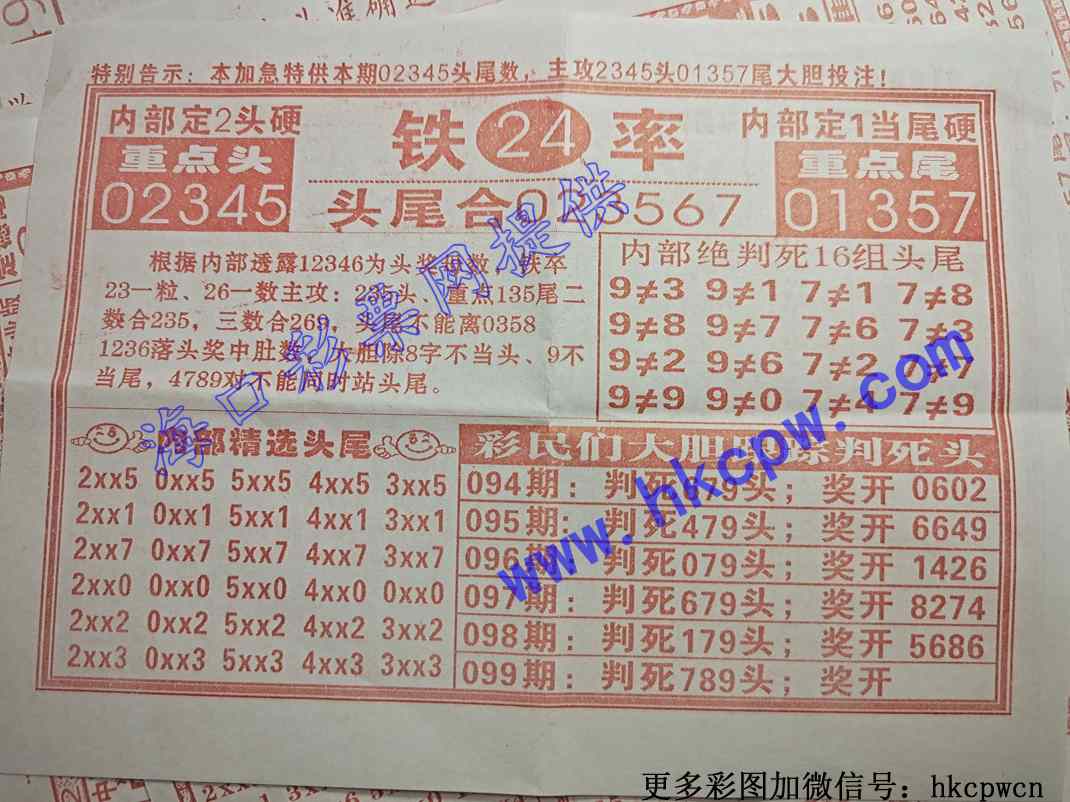 特别告示：本加急特供本期02345头尾数，主攻2345头01357尾大胆投注！
内部定2头硬
重点头
02345
铁24率
头尾合0 567
内部定1当尾硬
重点尾
01357
根据内部透露12346为头奖 数，铁卒
23一粒、26一数主攻：235头、重点135尾二
数合235，三数合269，头尾不能离0358
1236落头奖中肚数，大胆除8字不当头、9不
当尾，4789对不能同时站头尾。
内部绝判死16组头尾
9≠3 9≠1 7≠1 7≠8
9≠8 9≠7 7≠6 7≠3
9≠2 9≠6 7≠2 7≠7
9≠9 9≠0 7≠4 7≠9
内部精选头尾
2xx5 0xx5 5xx5 4xx5 3xx5
2xx1 0xx1 5xx1 4xx1 3xx1
2xx7 0xx7 5xx7 4xx7 3xx7
2xx0 0xx0 5xx0 4xx0 0xx0
2xx2 0xx2 5xx2 4xx2 3xx2
2xx3 0xx3 5xx3 4xx3 3xx3
彩民们大胆跟踪判死头
094期：判死679头；奖开 0602
095期：判死479头；奖开 6649
096期：判死079头；奖开 1426
097期：判死679头；奖开 8274
098期：判死179头；奖开 5686
099期：判死789头；奖开
海口彩票网提供
www.hkcpw.com
更多彩图加微信号：hkcpwcn